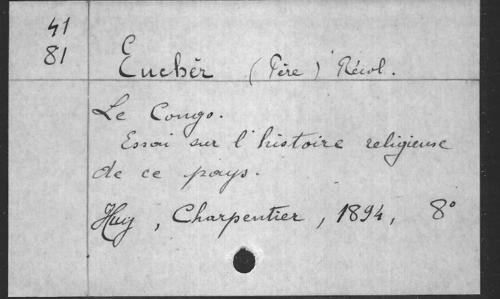 41
81
Euchér (Père) Récol.
Le Congo.
Essai sur l'histoire religieuse
de ce pays.
Huy, Charpentier, 1894, 8°